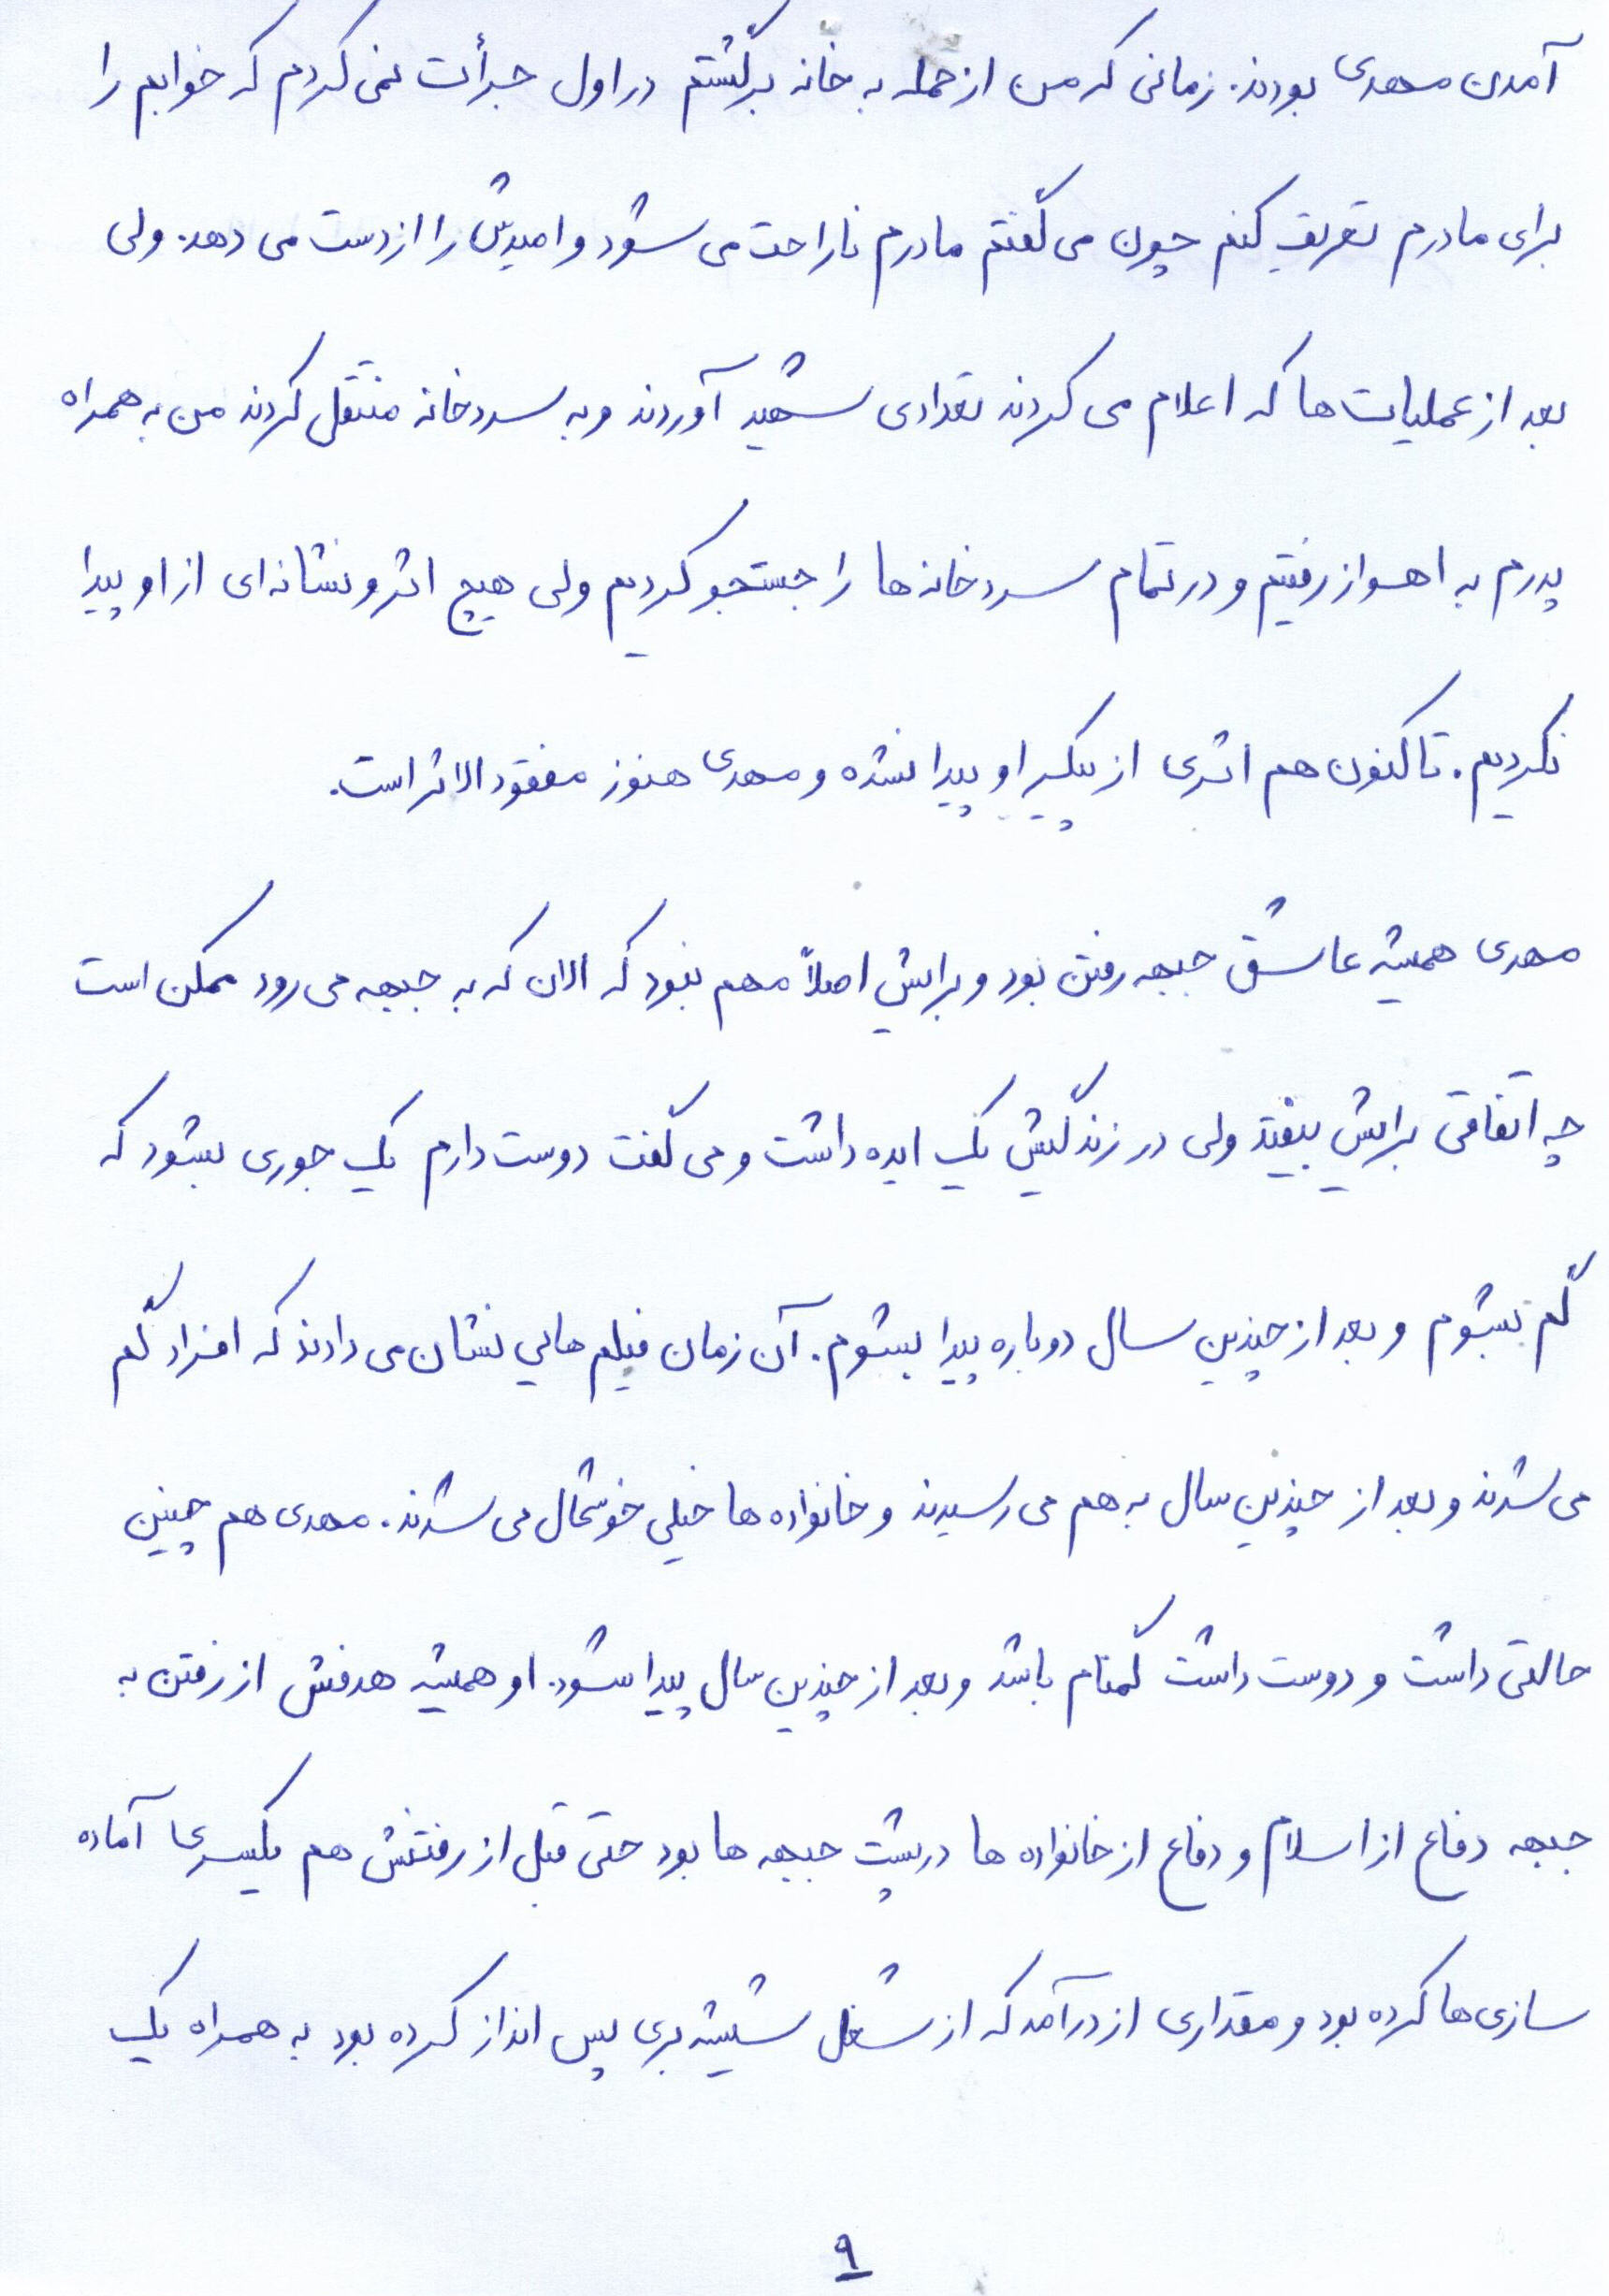 آمدن مهدی بودند. زمانی که من از حمله به خانه برگشتم در اول جرأت نمی کردم که خوابم را
برای مادرم تعریف کنم چون می گفتم مادرم ناراحت می شود و امیدش را از دست می دهد. ولی
بعد از عملیات ها که اعلام می کردند تعدادی شهید آوردند و به سردخانه منتقل کردند من به همراه
پدرم به اهواز رفتیم و در تمام سردخانه ها را جستجو کردیم ولی هیچ اثر و نشانه ای از او پیدا
نکردیم. تاکنون هم اثری از پیکر او پیدا نشده و مهدی هنوز مفقود الاثر است.
مهدی همیشه عاشق جبهه رفتن بود و برایش اصلاً مهم نبود که الان که به جبهه می رود ممکن است
چه اتفاقی برایش بیفتد ولی در زندگیش یک ایده داشت و می گفت دوست دارم یک جوری بشود که
گم بشوم و بعد از چندین سال دوباره پیدا بشوم. آن زمان فیلم هایی نشان می دادند که افراد گم
می شدند و بعد از چندین سال به هم می رسیدند و خانواده ها خیلی خوشحال می شدند. مهدی هم چنین
حالتی داشت و دوست داشت گمنام باشد و بعد از چندین سال پیدا شود. او همیشه هدفش از رفتن به
جبهه دفاع از اسلام و دفاع از خانواده ها در پشت جبهه ها بود حتی قبل از رفتنش هم یکسری آماده
سازی ها کرده بود و مقداری از درآمد که از شغل شیشه بری پس انداز کرده بود به همراه یک
۹